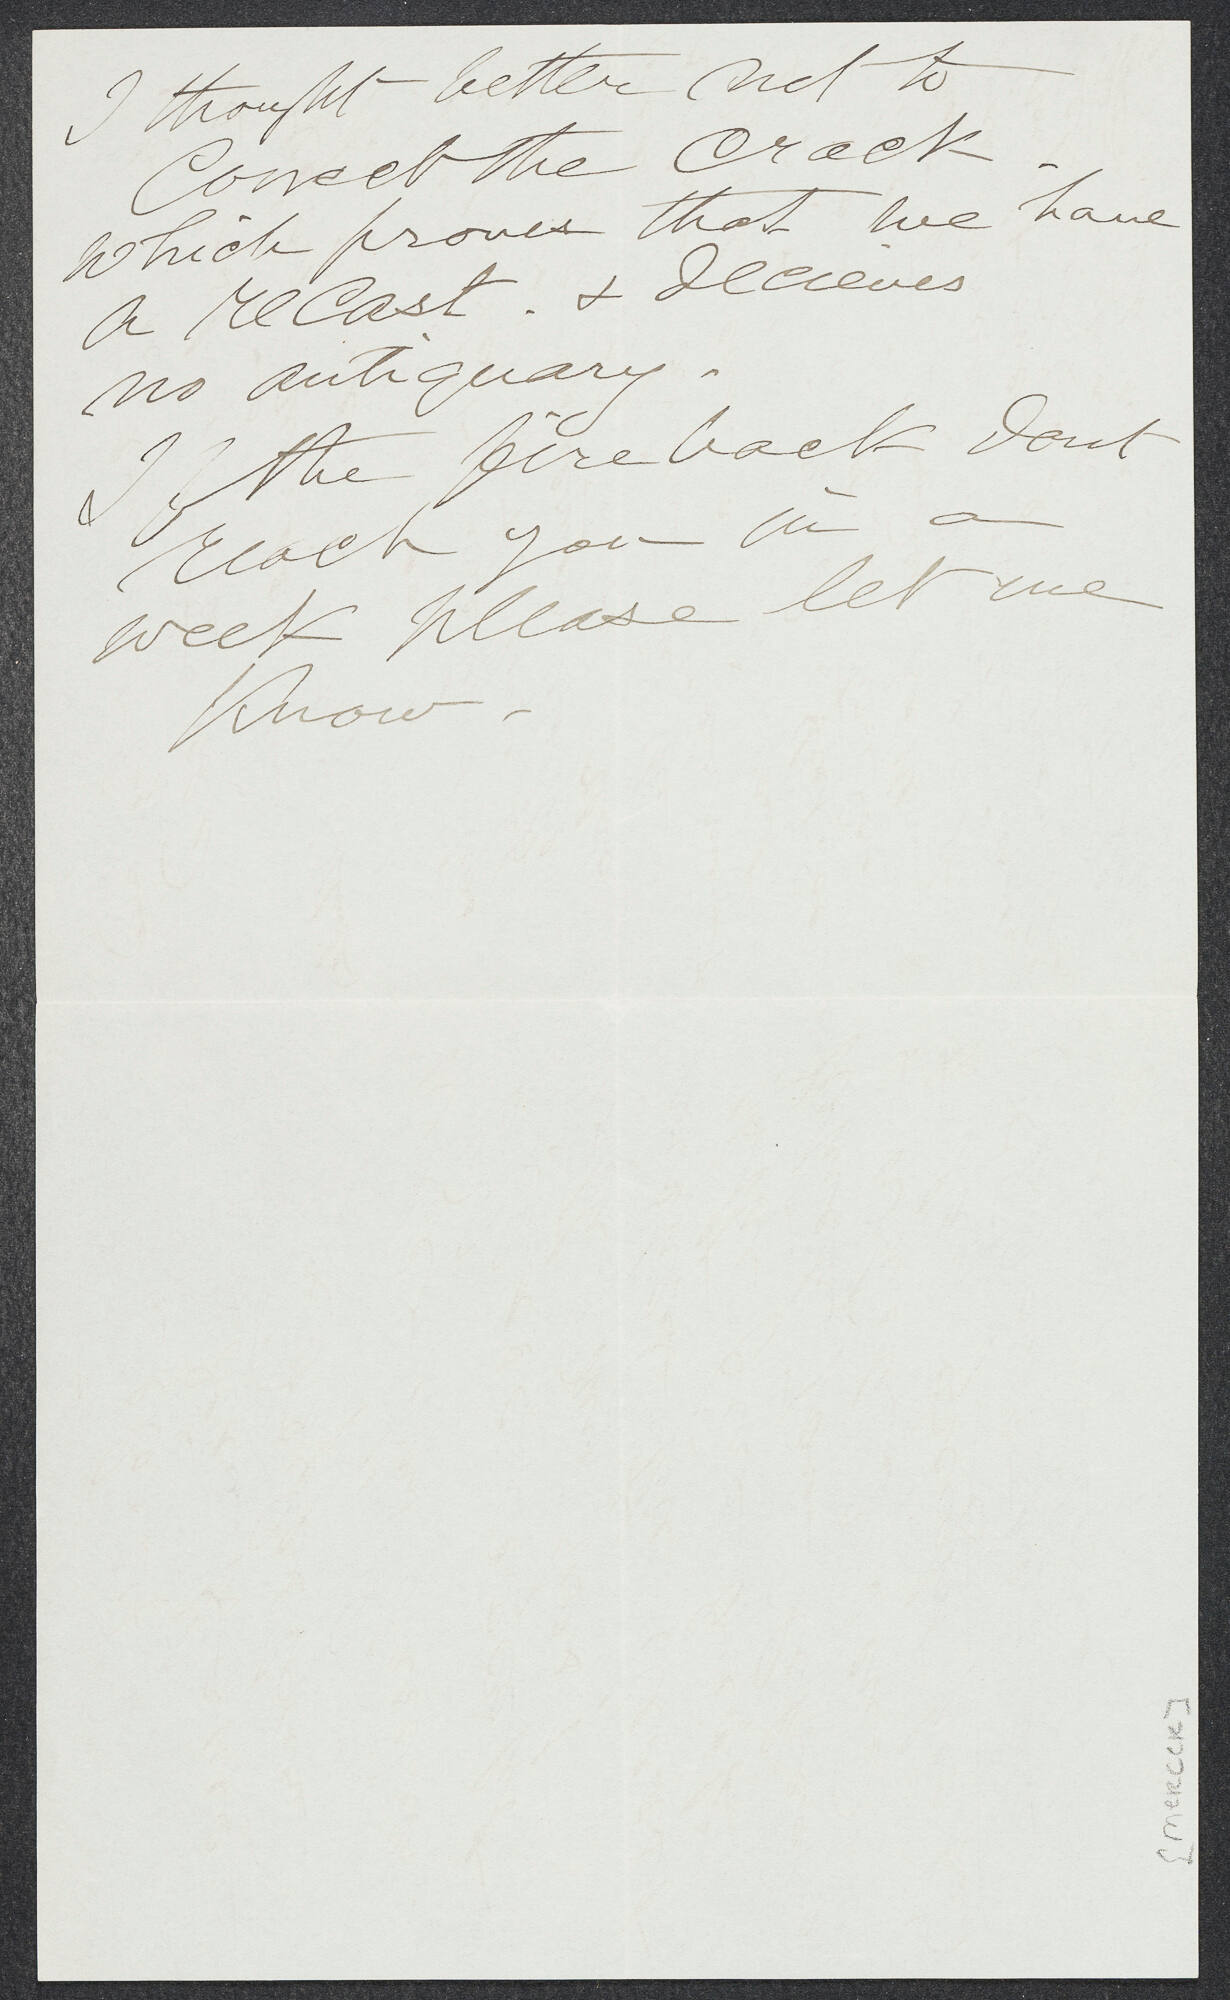 I thought better not to
Correct the Crack -
which proves that we have
a reCast. & decieves
no antiquary.
If the fire back dont
reach you in a
week please let me
Know -
[MERCCK]